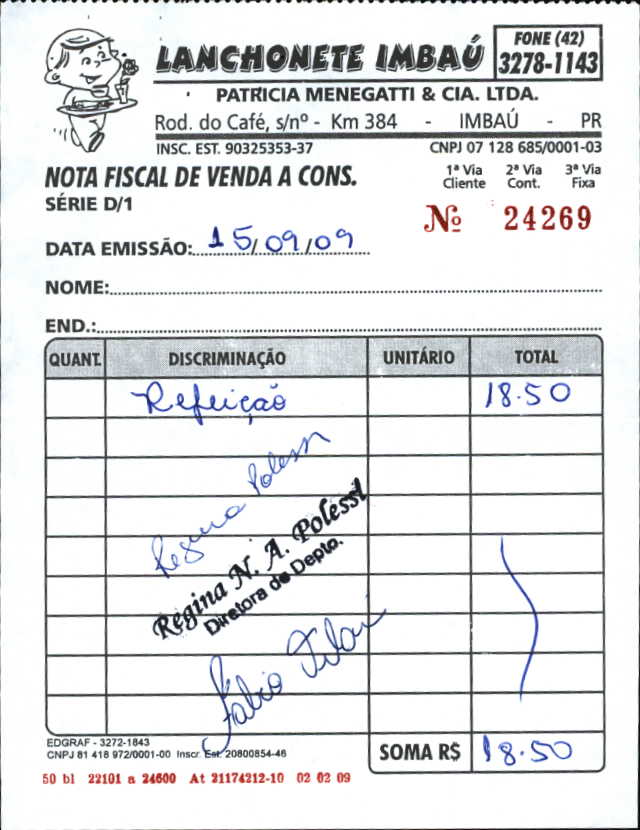 LANCHONETE IMBAÚ
FONE (42)
3278-1143
PATRICIA MENEGATTI & CIA. LTDA.
Rod. do Café, s/nº - Km 384 - IMBAÚ - PR
INSC. EST. 90325353-37 CNPJ 07 128 685/0001-03
NOTA FISCAL DE VENDA A CONS.
1ª Via Cliente 2ª Via Cont. 3ª Via Fixa
SÉRIE D/1
Nº 24269
DATA EMISSÃO: 15/09/09
NOME:
END.:
QUANT. DISCRIMINAÇÃO UNITÁRIO TOTAL
Refeição 18.50
Regina Polessi
Regina N. A. Polessi
Diretora de Depto.
Fabio
EDGRAF - 3272-1843
CNPJ 81 418 972/0001-00 Inscr. Est. 20800854-46
SOMA R$ 18.50
50 bl 22101 a 24600 At 21174212-10 02 02 09